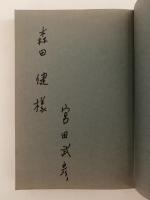 森田健様
富田武彦